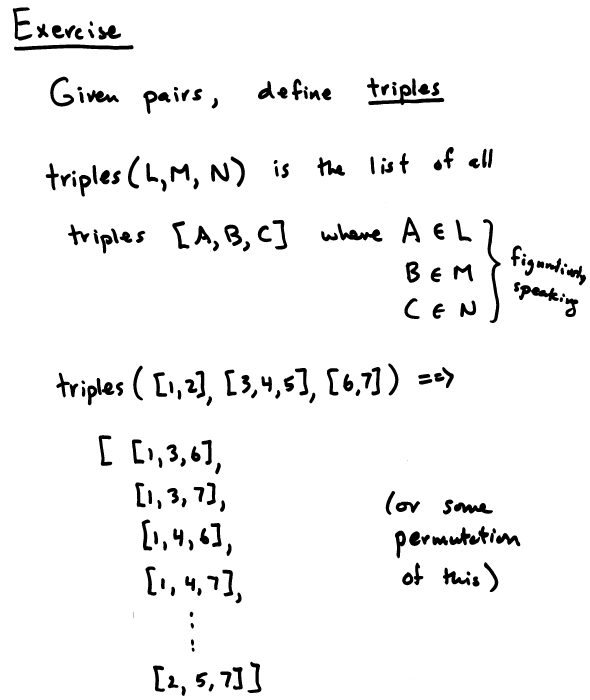 Exercise
Given pairs, define triples
triples(L,M, N) is the list of all
triples [A,B,C] where A ∈ L
B ∈ M
C ∈ N
figuratively
speaking
triples ( [1,2], [3,4,5], [6,7] ) ==>
[ [1,3,6],
[1,3,7],
[1,4,6],
[1,4,7],
⋮
[2,5,7]]
(or some
permutation
of this)